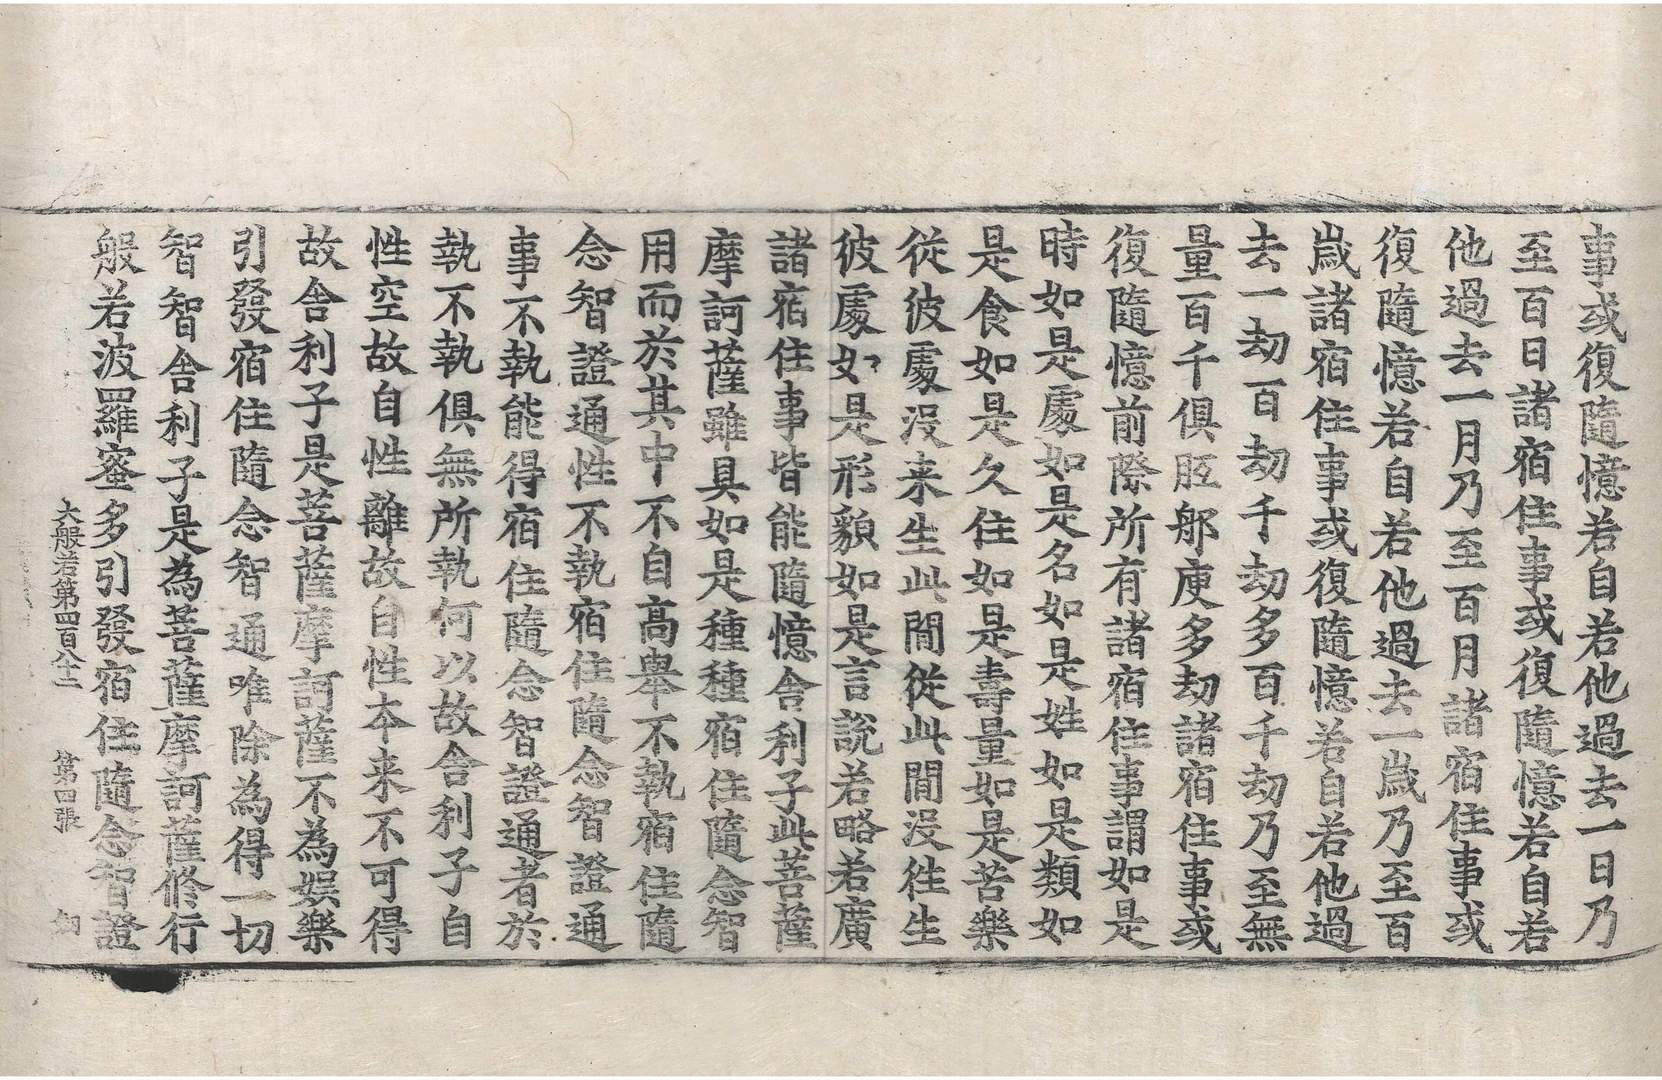 事或復隨憶若自若他過去一日乃
至百日諸宿住事或復隨憶若自若
他過去一月乃至百月諸宿住事或
復隨憶若自若他過去一歲乃至百
歲諸宿住事或復隨憶若自若他過
去一劫百劫千劫多百千劫乃至無
量百千俱胝那庾多劫諸宿住事或
復隨憶前際所有諸宿住事謂如是
時如是處如是名如是姓如是類如
是食如是久住如是壽量如是苦樂
從彼處沒来生此閒從此閒沒徃生
彼處如是形貌如是言說若略若廣
諸宿住事皆能隨憶舍利子此菩薩
摩訶薩雖具如是種種宿住隨念智
用而於其中不自高舉不執宿住隨
念智證通性不執宿住隨念智證通
事不執能得宿住隨念智證通者於
執不執俱無所執何以故舍利子自
性空故自性離故自性本来不可得
故舍利子是菩薩摩訶薩不為娱樂
引發宿住隨念智通唯除為得一切
智智舍利子是為菩薩摩訶薩修行
般若波羅蜜多引發宿住隨念智證
大般若第四百八十二 第四張